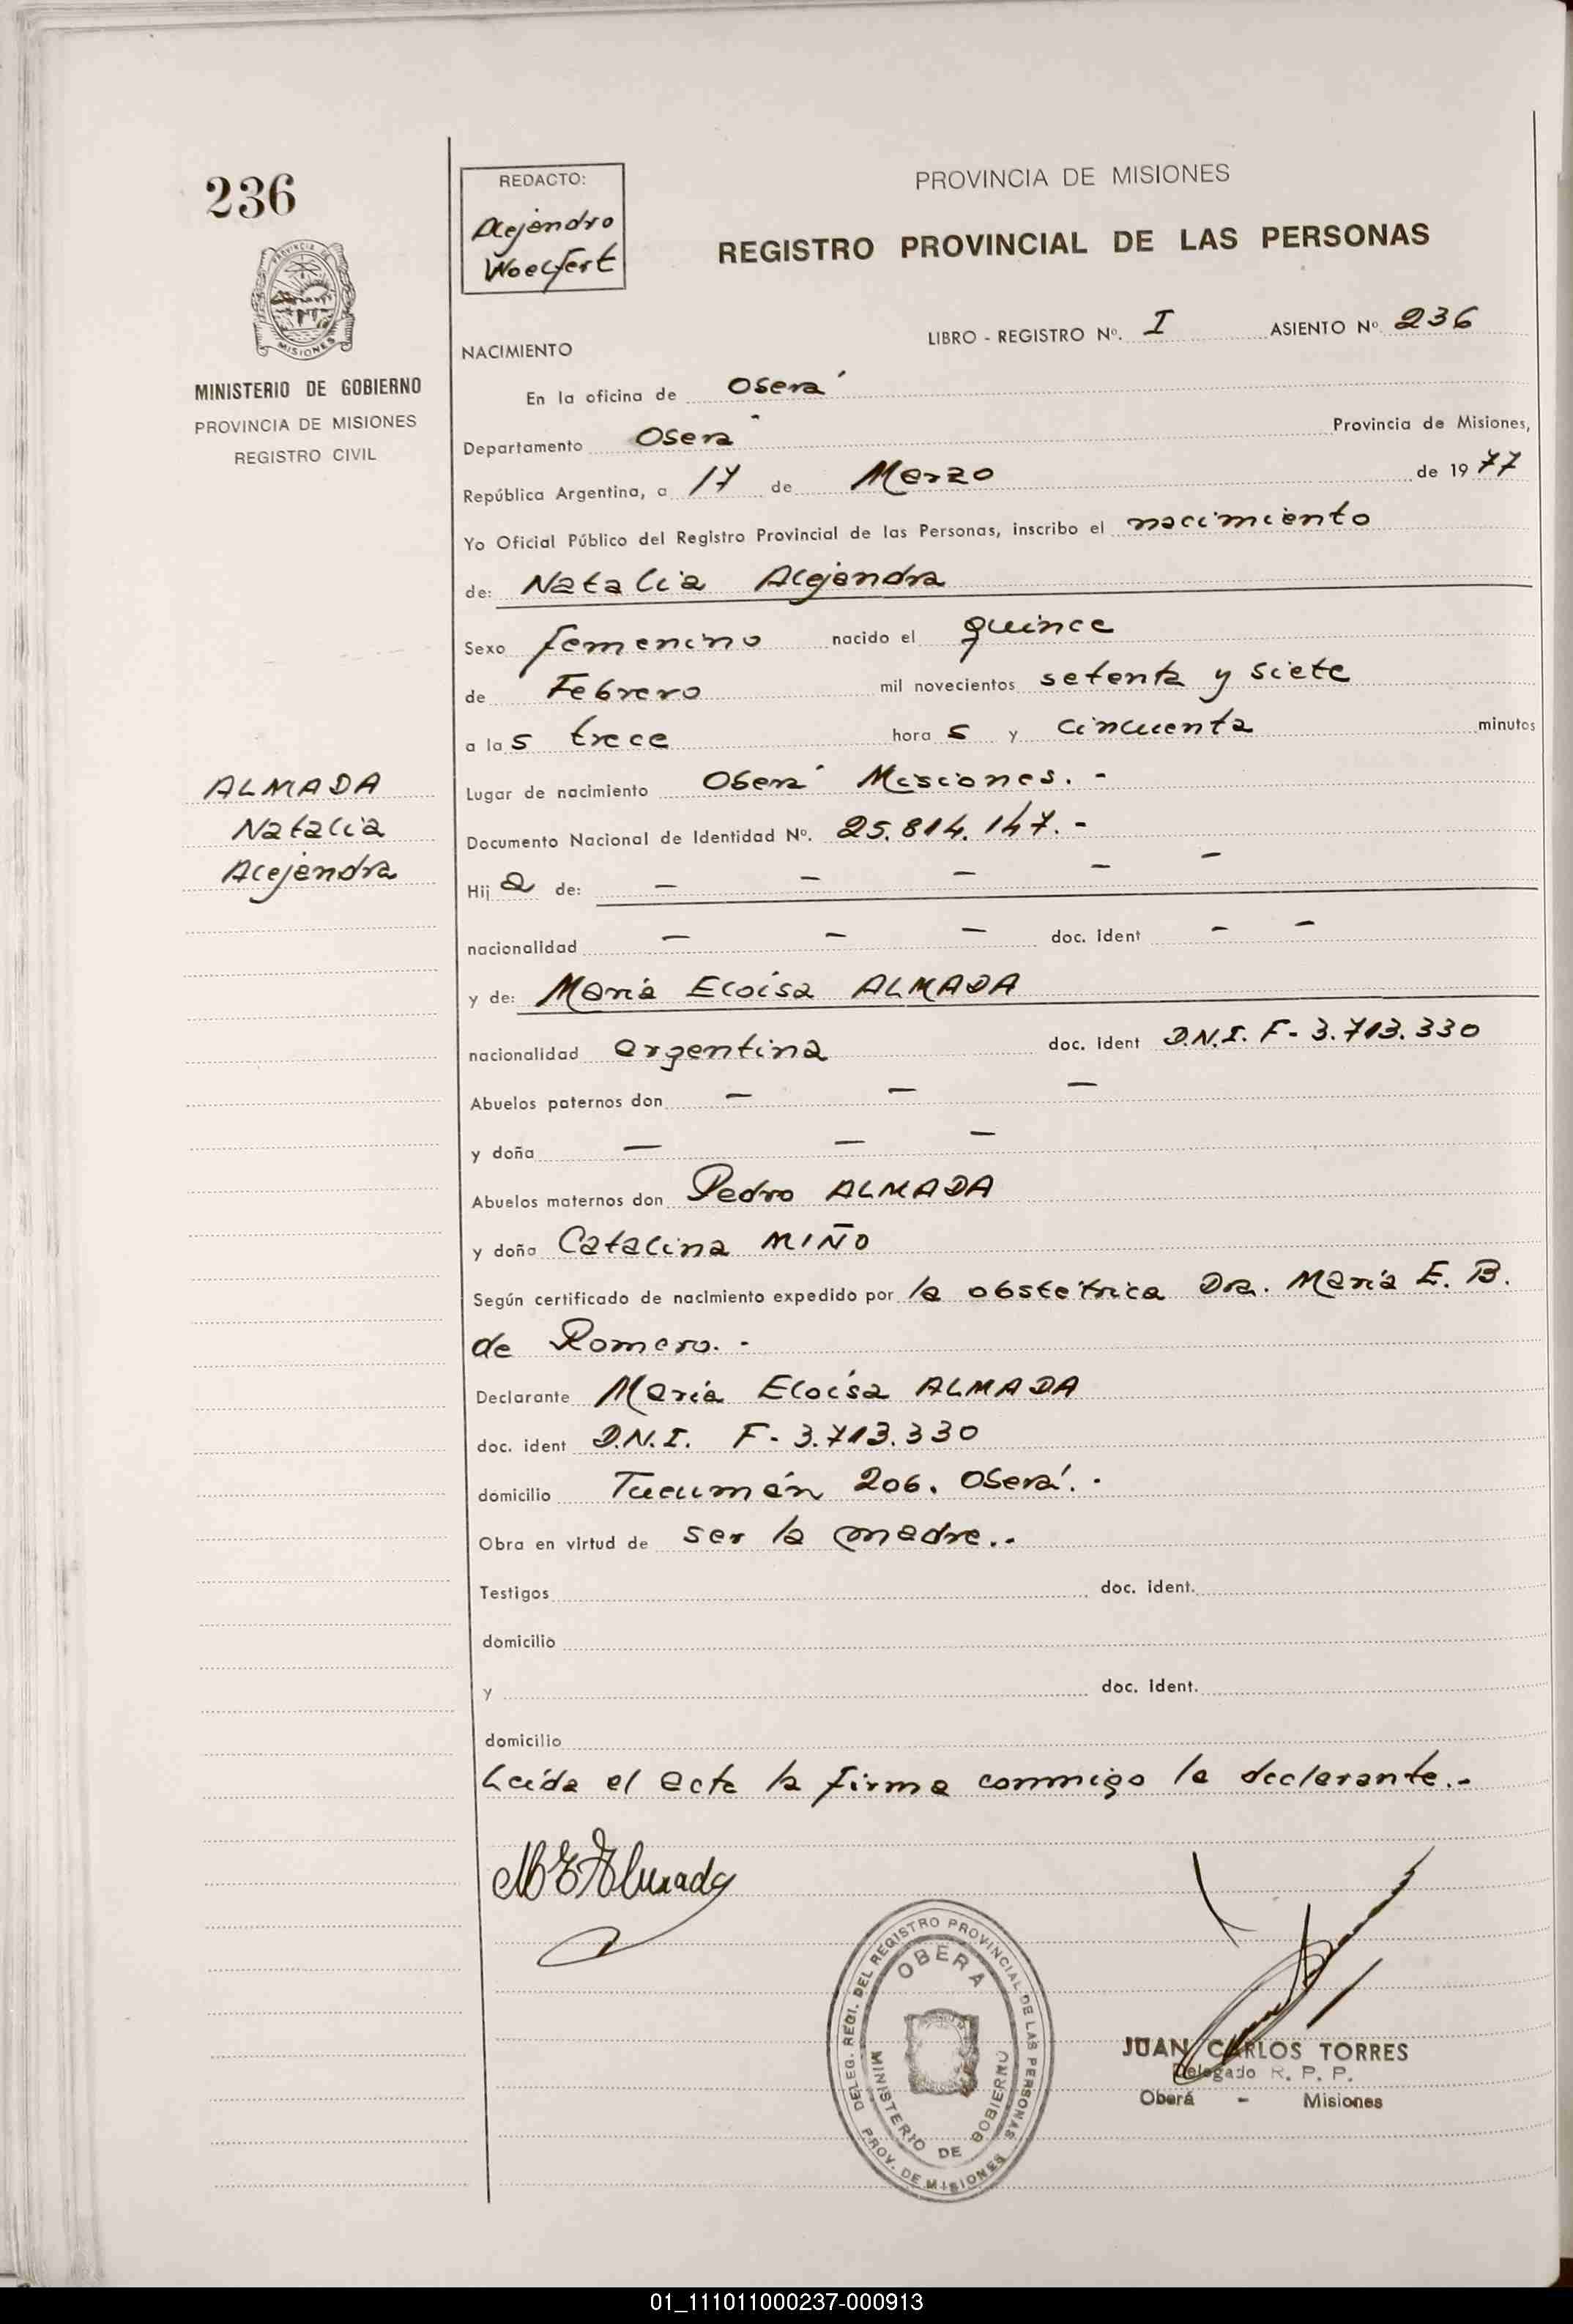 236
PROVINCIA DE MISIONES
MINISTERIO DE GOBIERNO
PROVINCIA DE MISIONES
REGISTRO CIVIL
ALMADA
Natalia
Alejandra
REDACTO:
Alejandro
Woelfert
PROVINCIA DE MISIONES
REGISTRO PROVINCIAL DE LAS PERSONAS
LIBRO - REGISTRO Nº. I ASIENTO Nº 236
NACIMIENTO
En la oficina de Oberá
Departamento Oberá Provincia de Misiones,
República Argentina, a 17 de Marzo de 1977
Yo Oficial Público del Registro Provincial de las Personas, inscribo el nacimiento
de: Natalia Alejandra
Sexo femenino nacido el quince
de Febrero mil novecientos setenta y siete
a las trece horas y cincuenta minutos
Lugar de nacimiento Oberá Misiones. -
Documento Nacional de Identidad Nº. 25.814.147. -
Hija de: - - - - -
nacionalidad - - - doc. ident - -
y de: María Eloísa ALMADA
nacionalidad argentina doc. ident D.N.I. F- 3.713.330
Abuelos paternos don - - -
y doña - - -
Abuelos maternos don Pedro ALMADA
y doña Catalina MIÑO
Según certificado de nacimiento expedido por la obstétrica Dra. María E. B.
de Romero. -
Declarante María Eloísa ALMADA
doc. ident D.N.I. F- 3.713.330
domicilio Tucumán 206. Oberá. -
Obra en virtud de ser la madre. -
Testigos doc. ident.
domicilio
y doc. Ident.
domicilio
Leída el acta la firma conmigo la declarante. -
M E Almada
DELEG. REGI. DEL REGISTRO PROVINCIAL DE LAS PERSONAS
OBERA
MINISTERIO DE GOBIERNO
PROV. DE MISIONES
JUAN CARLOS TORRES
Delegado R. P. P.
Oberá - Misiones
01_111011000237-000913